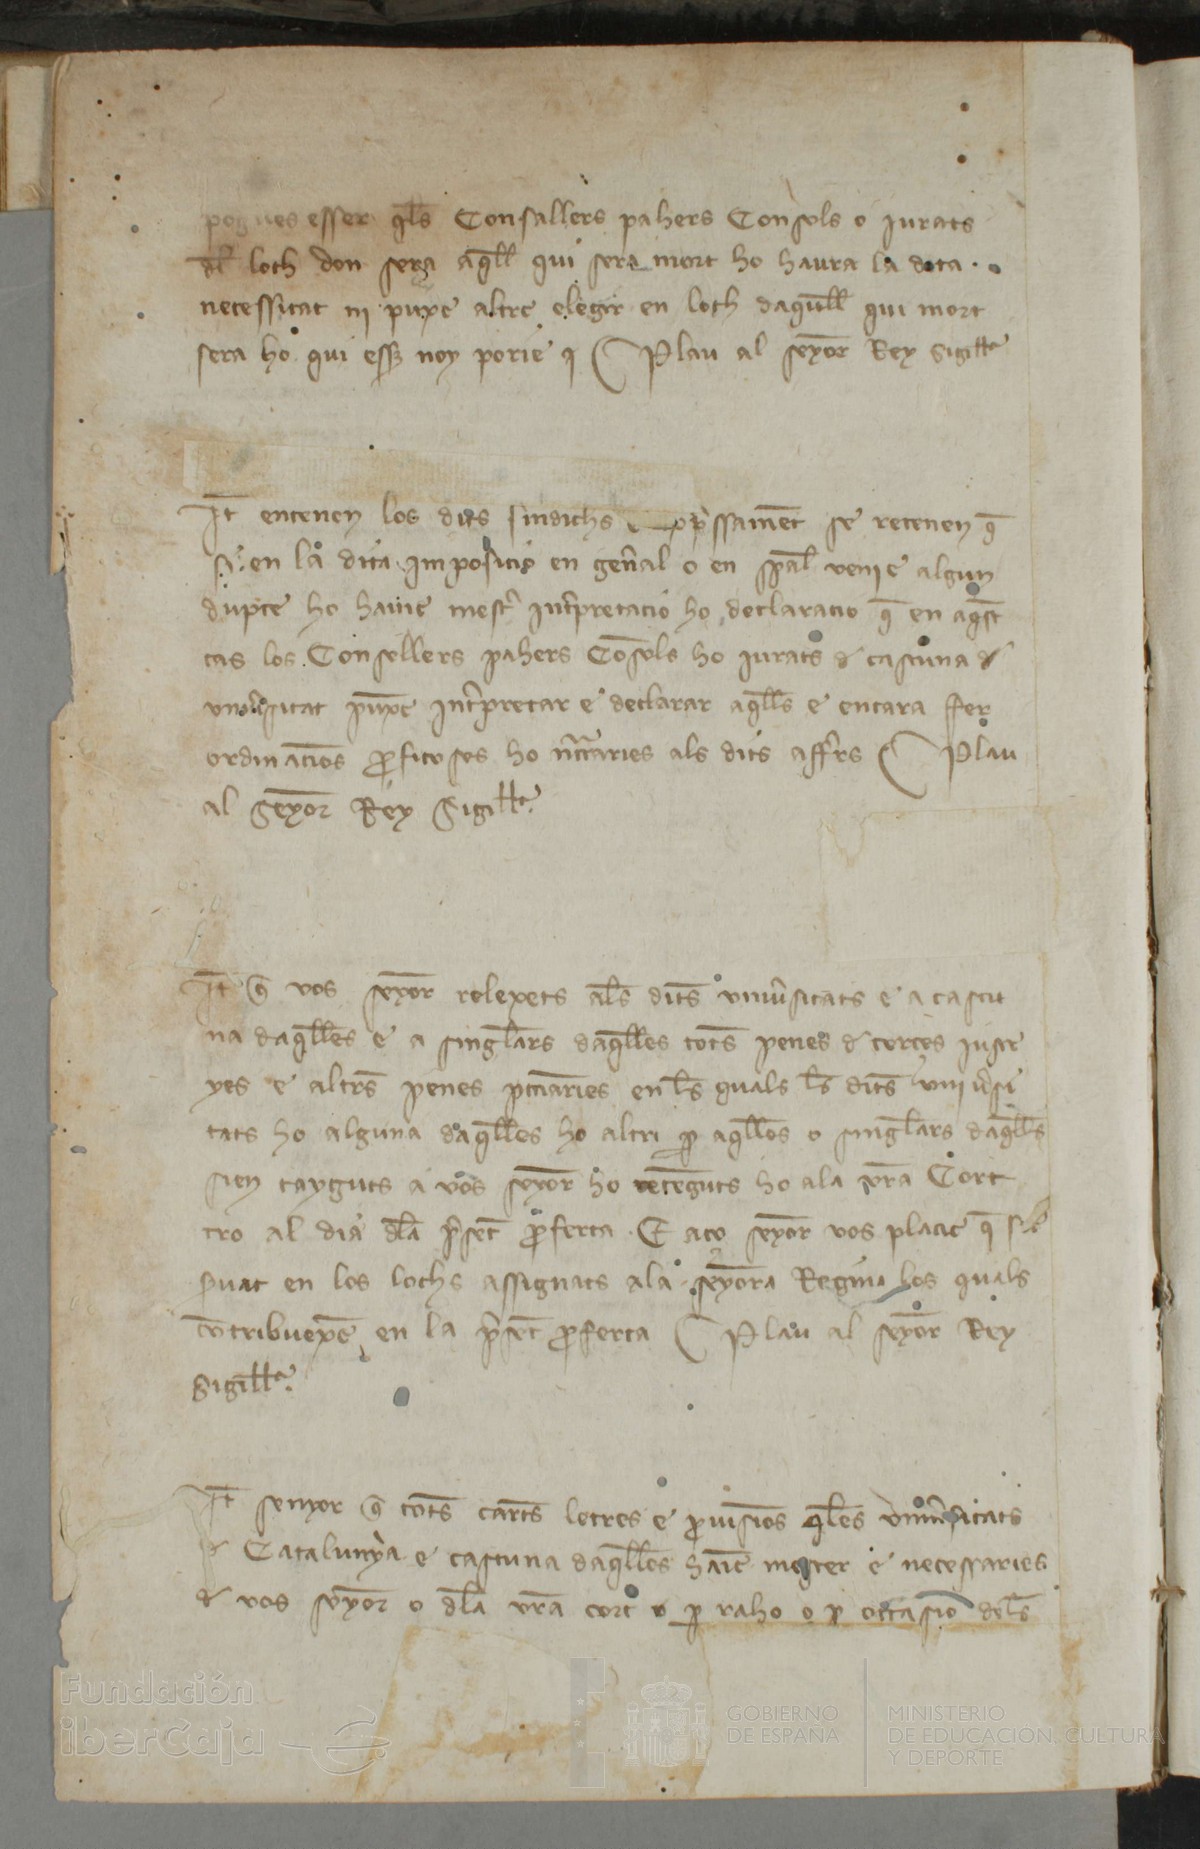 pogues esser qls Consallers pahers Consols o jurats
dl loch don sera aqll qui sera mort ho haura la dita
necessitat ni puxe altre elegir en loch daqull qui mort
sera ho qui esser noy porie Plau al seyor Rey Sigilla
It entenen los dits sindichs e exprssament se retenen q
si en la dita imposicio en genral o en spal venie algun
dupte ho havie mestr intrpretacio ho declaracio q en aqst
cas los Consellers pahers Cosols ho jurats d cascuna d
univrsitat puxe intrpretar e declarar aqlls e encara fer
ordinacios pfitoses ho ncaries als dits affrs Plau
al Seyor Rey Sigilla
It q vos seyor relexets als dits univrsitats e a cascu
na daqlles e a singlars daqlles tots penes d terces
yes e altrs penes pcuniaries en ls quals ls dits univrsi
tats ho alguna daqlles ho altri p aqlles o singlars daqlls
sien tayguts a vos seyor ho retenguts ho ala vra Cort
tro al dia dla prset pferta E aco seyor vos placie q
svat en los lochs assignats ala seyora Regina los quals
cotribuexe en la prset pferta Plau al seyor Rey
Sigilla
It senyor q tots carts letres e pvisios qles univrsitats
d Catalunya e cascuna daqlles haie mester e necessaries
d vos seyor o dla vra cort o p raho o p occasio dels
Fundación
iberCaja
GOBIERNO
DE ESPAÑA
MINISTERIO
DE EDUCACIÓN, CULTURA
Y DEPORTE